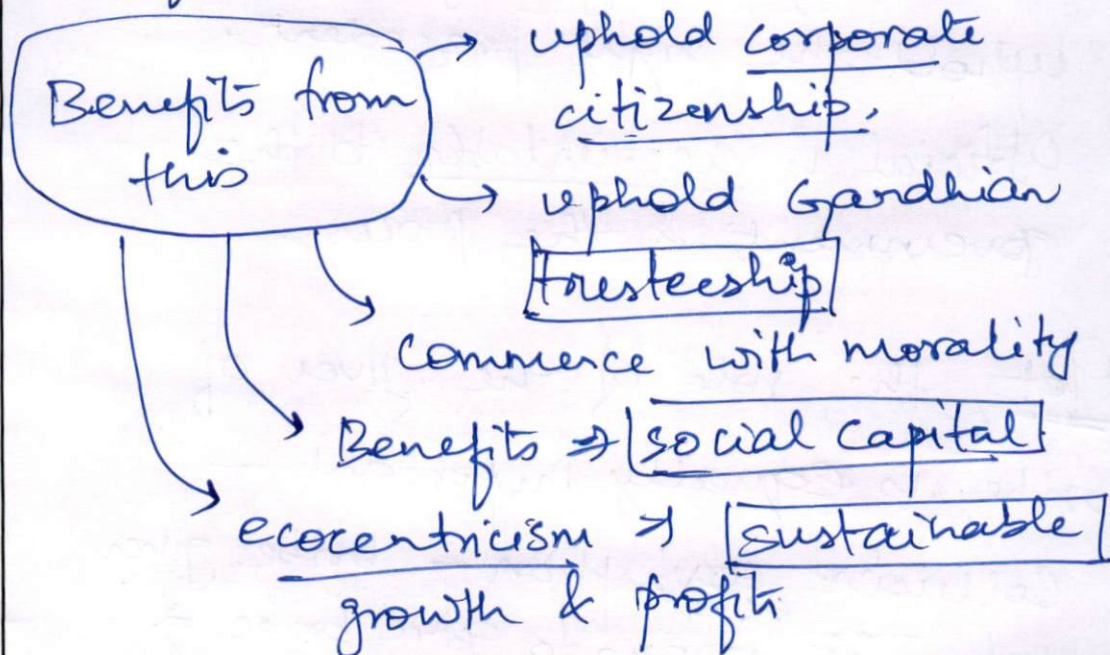 Benefits from
this
→ uphold corporate
citizenship.
→ uphold Gandhian
trusteeship
commerce with morality
Benefits ⇒ social capital
ecocentricism → sustainable
growth & profit